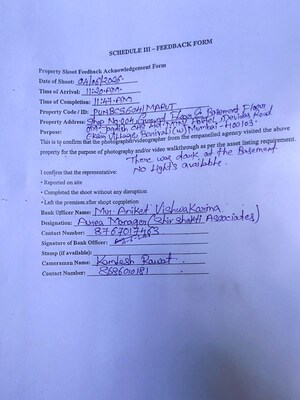 SCHEDULE III – FEEDBACK FORM
Property Shoot Feedback Acknowledgement Form
Date of Shoot: 04/05/2025
Time of Arrival: 11:20 AM
Time of Completion: 11:47 AM
Property Code / ID:
Property Address: Shop No-004 Ground Floor & Basement Floor
Purpose: Road
Village, Borivali (W) Mumbai - 400103.
This is to confirm that the photographer/videographer from the empanelled agency visited the above
property for the purpose of photography and/or video walkthrough as per the asset listing requirement.
There was dark at the Basement.
No lights available.
I confirm that the representative:
• Reported on site
• Completed the shoot without any disruption
• Left the premises after shoot completion
Bank Officer Name: Mr. Aniket Vishwakarma
Designation: Area Manager (Shiv Shakti Associates)
Contact Number: 8767017463
Signature of Bank Officer:
Stamp (if available):
Cameraman Name: Kamlesh Rawat
Contact Number: 8686010181